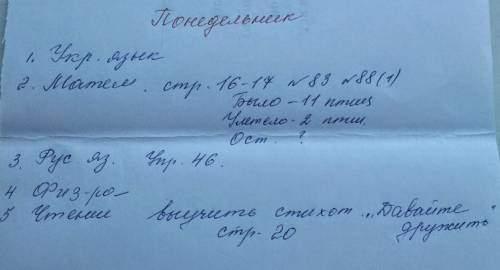 Понедельник
1. Укр. язык
2. Матем. стр. 16-17 №83 №88(1)
Было - 11 птиц
Улетело - 2 птиц
Ост. ?
3. Рус яз. Упр. 46.
4 Физ-ра
5 Чтение выучить стихот. "Давайте дружить"
стр. 20